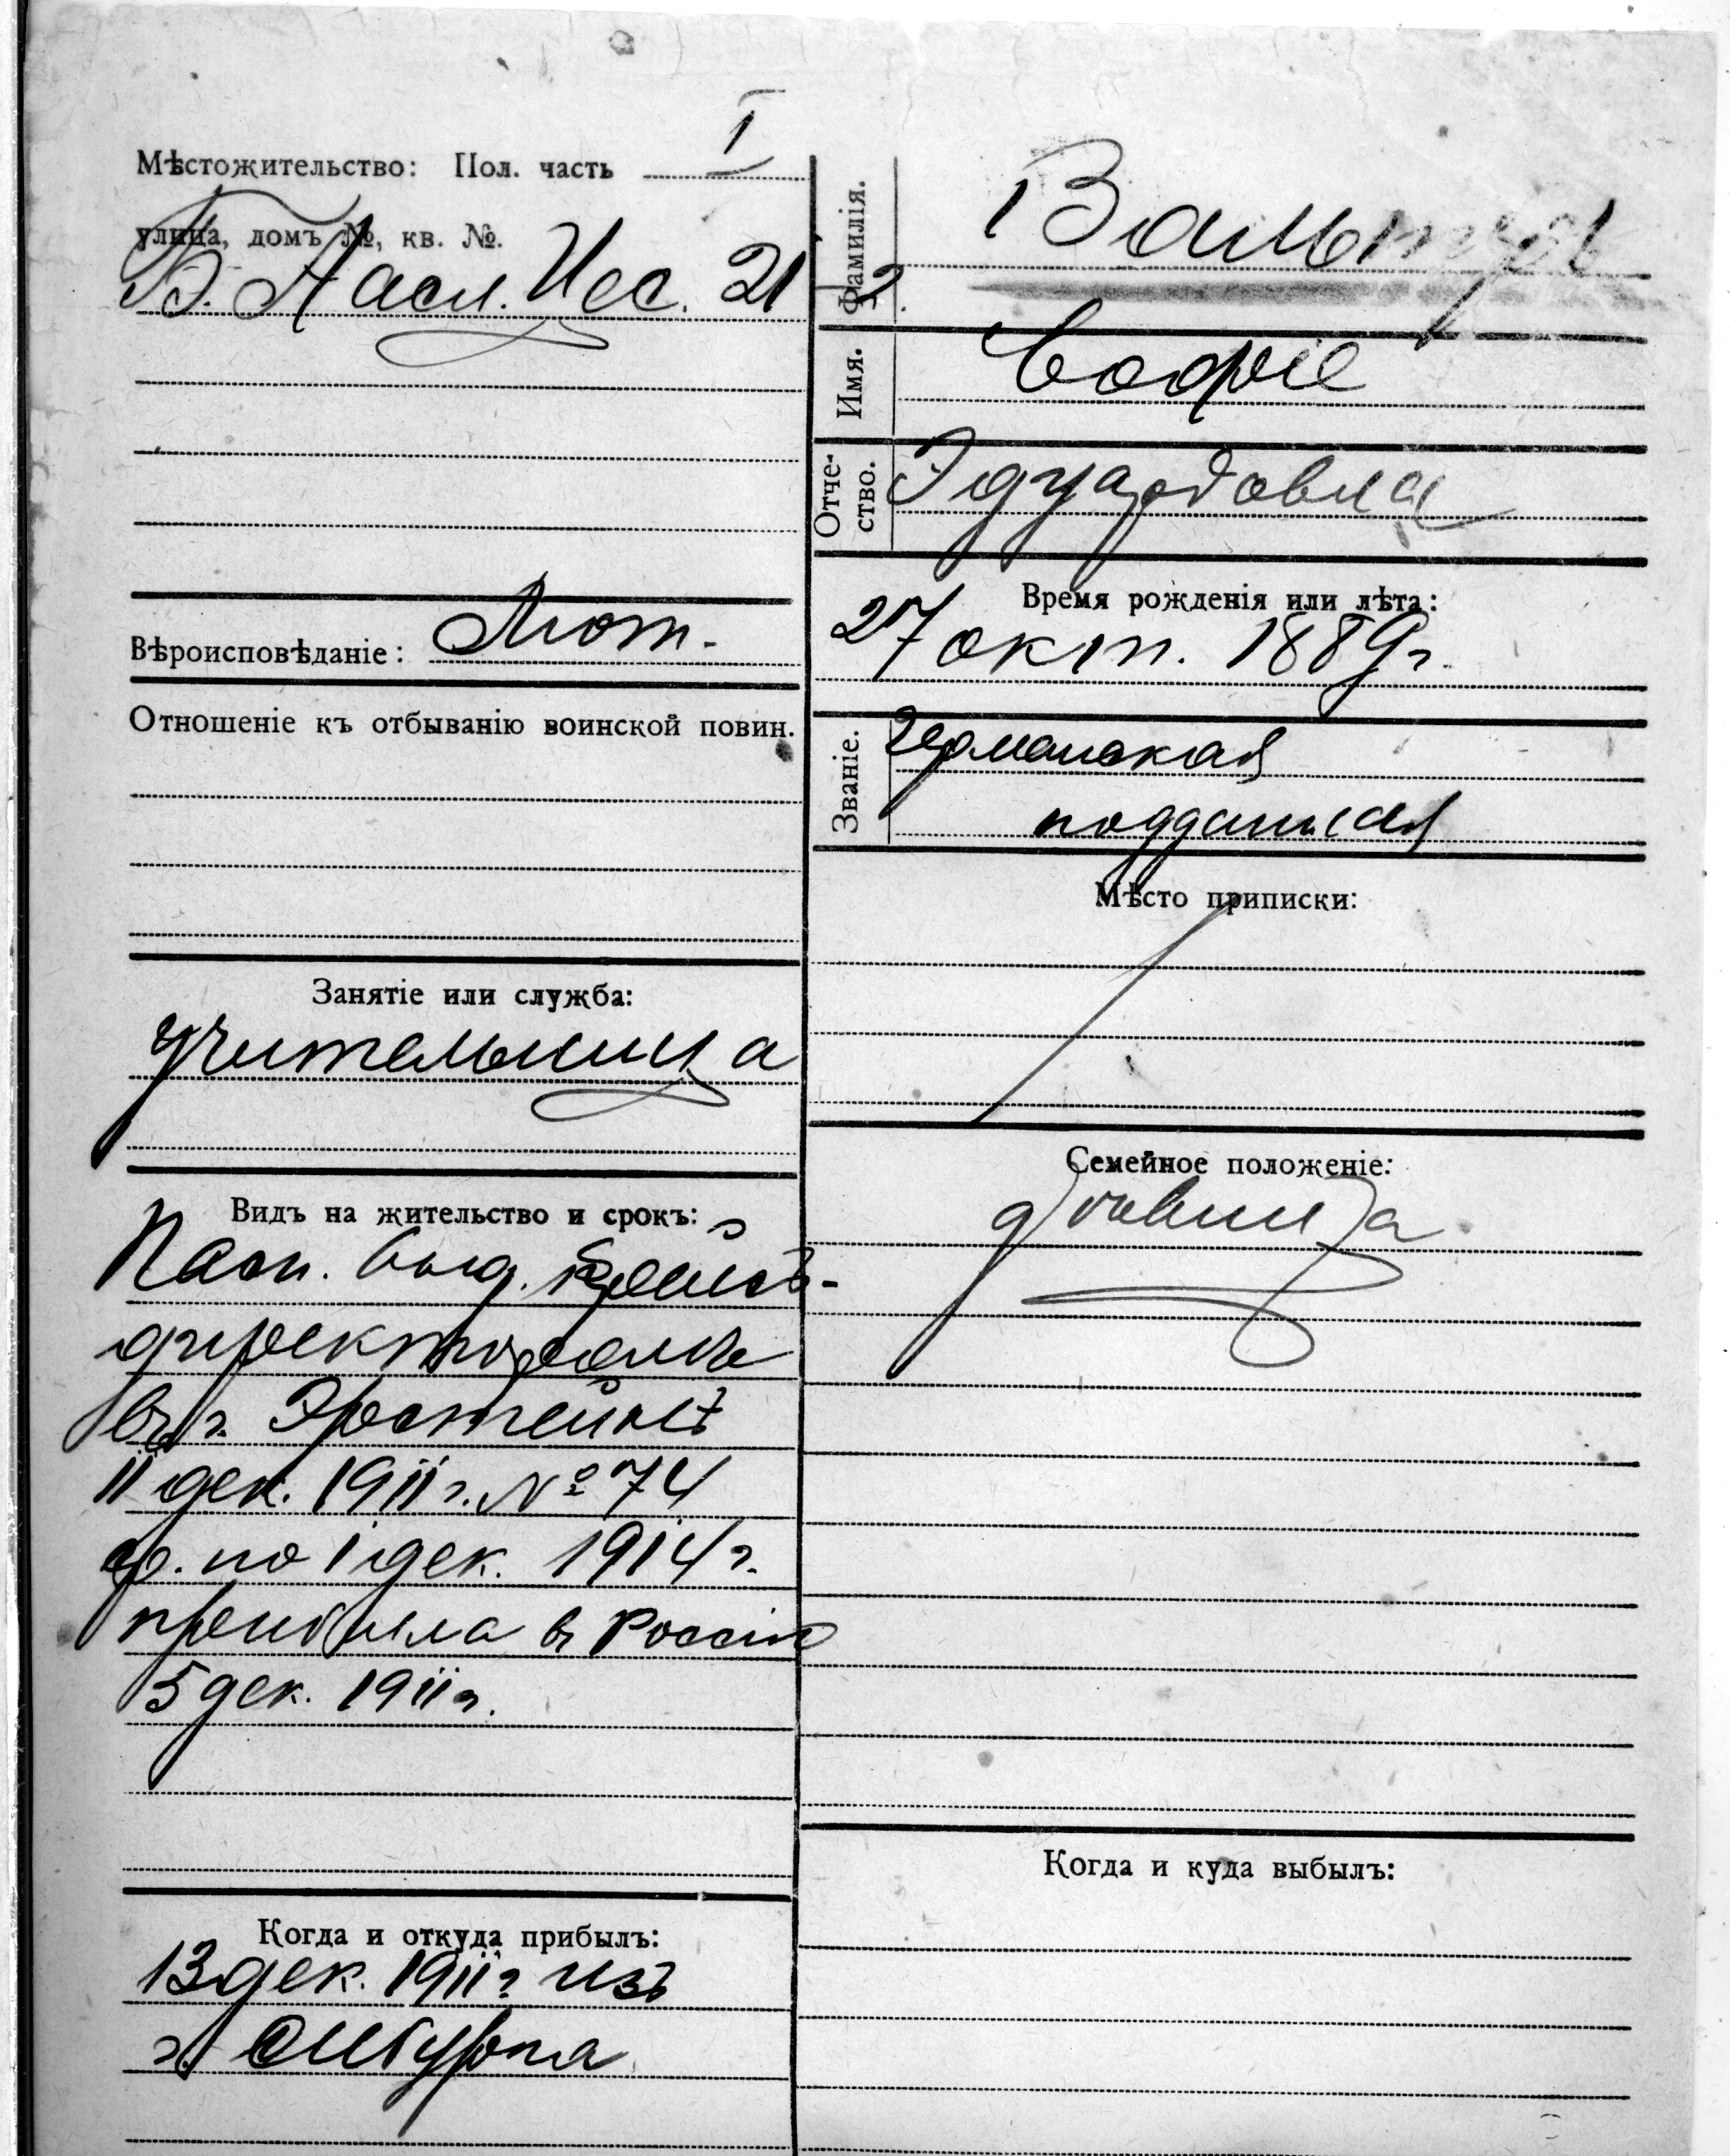 Мѣстожительство: Пол. часть I
улица, домъ №, кв. №.
Б. Насл. Цес. 21 2
Вѣроисповѣданіе: Лют.
Отношеніе къ отбыванію воинской повин.
Занятіе или служба:
учительница
Видъ на жительство и срокъ:
Пасп. выд. Крейсъ-
директоромъ
въ г.
11 дек. 1911 г. № 74
ср. по 1 дек. 1914 г.
прибыла въ Россію
5 дек. 1911 г.
Когда и откуда прибылъ:
13 дек. 1911 г. изъ
г.
Фамилія. Вальтеръ
Имя. Софіе
Отче-
ство. Эдуардовна
Время рожденія или лѣта:
27 окт. 1889 г.
Званіе. Германская
подданная
Мѣсто приписки:
Семейное положеніе:
дѣвица
Когда и куда выбылъ: